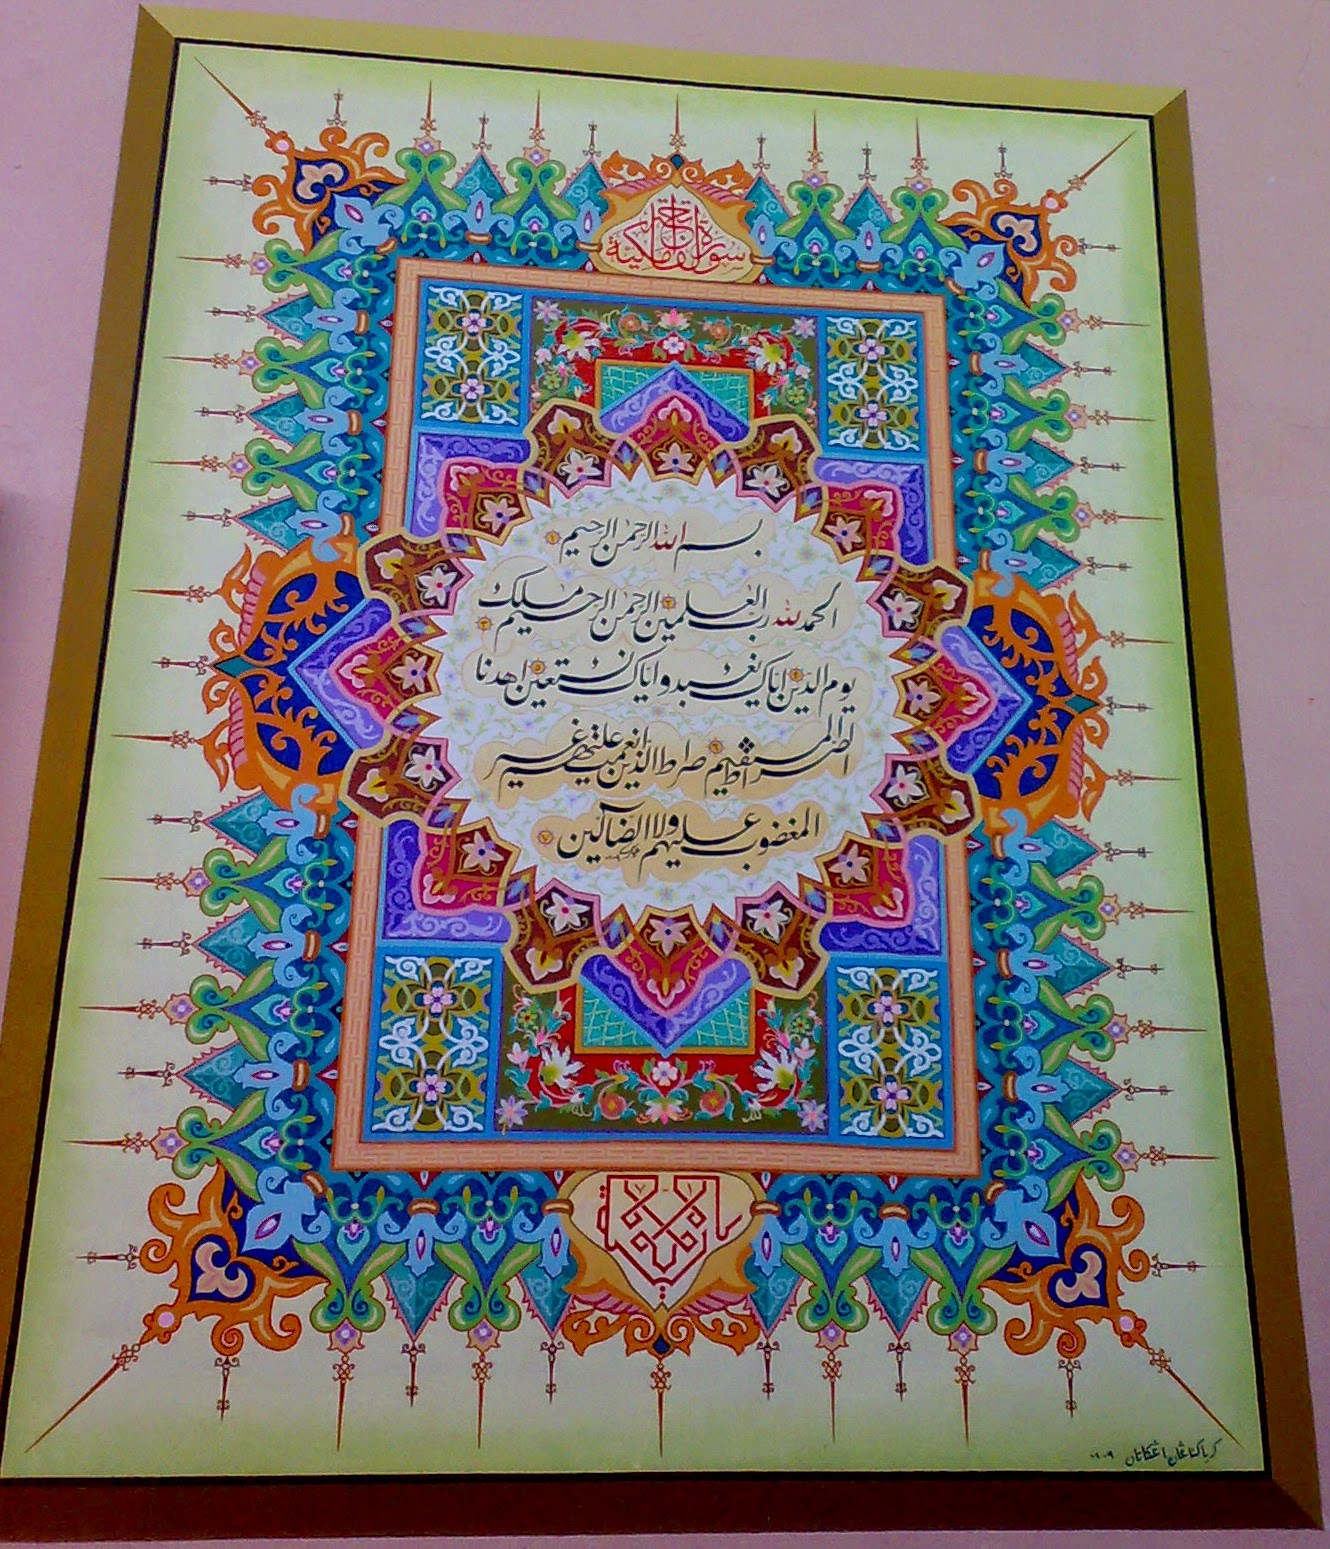 سورة الفاتحة مكية
بسم الله الرحمن الرحيم ١
الحمد لله رب العلمين ٢ الرحمن الرحيم ٣ ملك
يوم الدين ٤ اياك نعبد واياك نستعين ٥ اهدنا
الصراط المستقيم ٦ صراط الذين انعمت عليهم غير
المغضوب عليهم ولا الضالين ٧